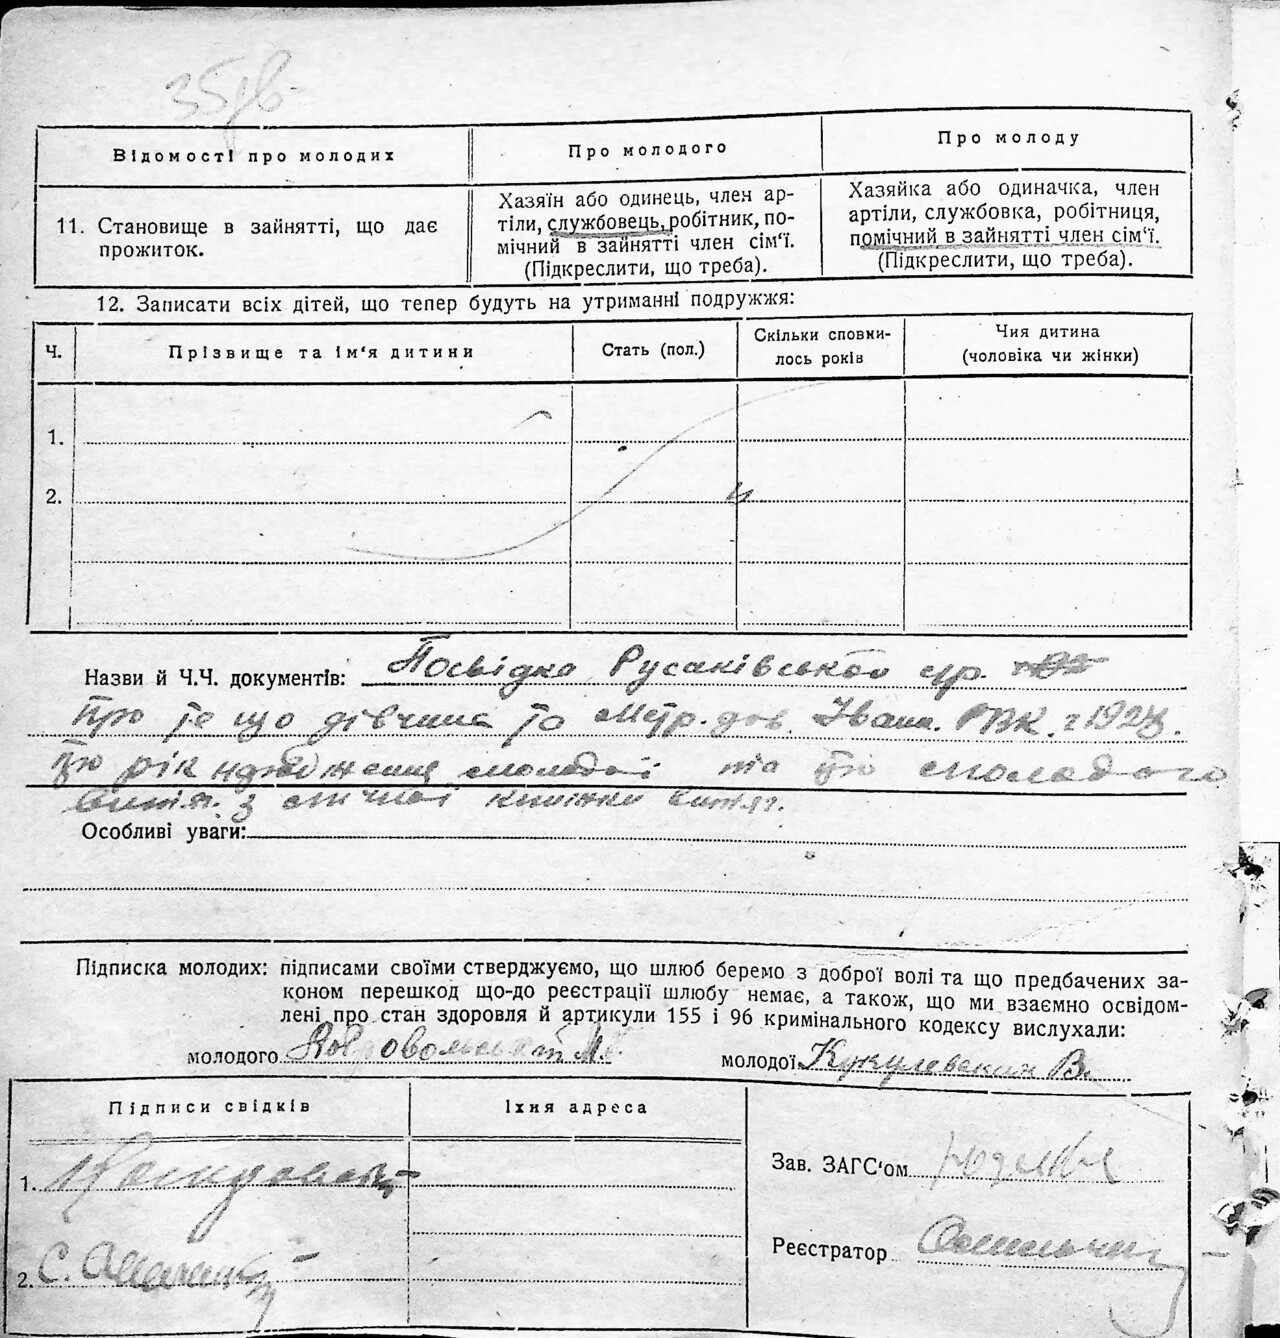 35
Відомості про молодих
Про молодого
Про молоду
11. Становище в зайнятті, що дає
прожиток.
Хазяїн або одинець, член ар-
тіли, службовець, робітник, по-
мічний в зайнятті член сім'ї.
(Підкреслити, що треба).
Хазяйка або одиначка, член
артіли, службовка, робітниця,
помічний в зайнятті член сім'ї.
(Підкреслити, що треба).
12. Записати всіх дітей, що тепер будуть на утриманні подружжя:
Ч.
Прізвище та ім'я дитини
Стать (пол.)
Скільки сповни-
лось років
Чия дитина
(чоловіка чи жінки)
1.
2.
Назви й Ч.Ч. документів: Посвідка Русаківської с/р.
Про те що дівчина та Метр. дов. Іван. РВК. 192
рік народження молодої та про молодого
витяг. з книжки витяг.
Особливі уваги:
Підписка молодих: підписами своїми стверджуємо, що шлюб беремо з доброї волі та що предбачених за-
коном перешкод що-до реєстрації шлюбу немає, а також, що ми взаємно освідом-
лені про стан здоровля й артикули 155 і 96 кримінального кодексу вислухали:
молодого М.
молодої Кукулевская В.
Підписи свідків
Їхня адреса
1.
2. С.
Зав. ЗАГС'ом
Реєстратор